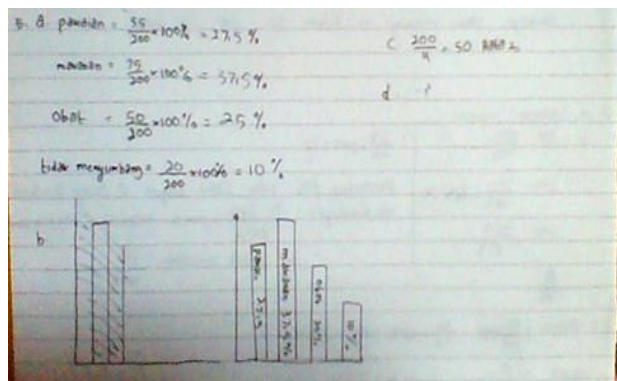 5. a pakaian = 55/200 × 100% = 27,5 %
makanan = 75/200 × 100% = 37,5 %
Obat = 50/200 × 100% = 25 %
tidak menyumbang = 20/200 × 100% = 10 %
c 200/4 = 50
d
b
27,5
makanan 37,5 %
obat 25%
10 %